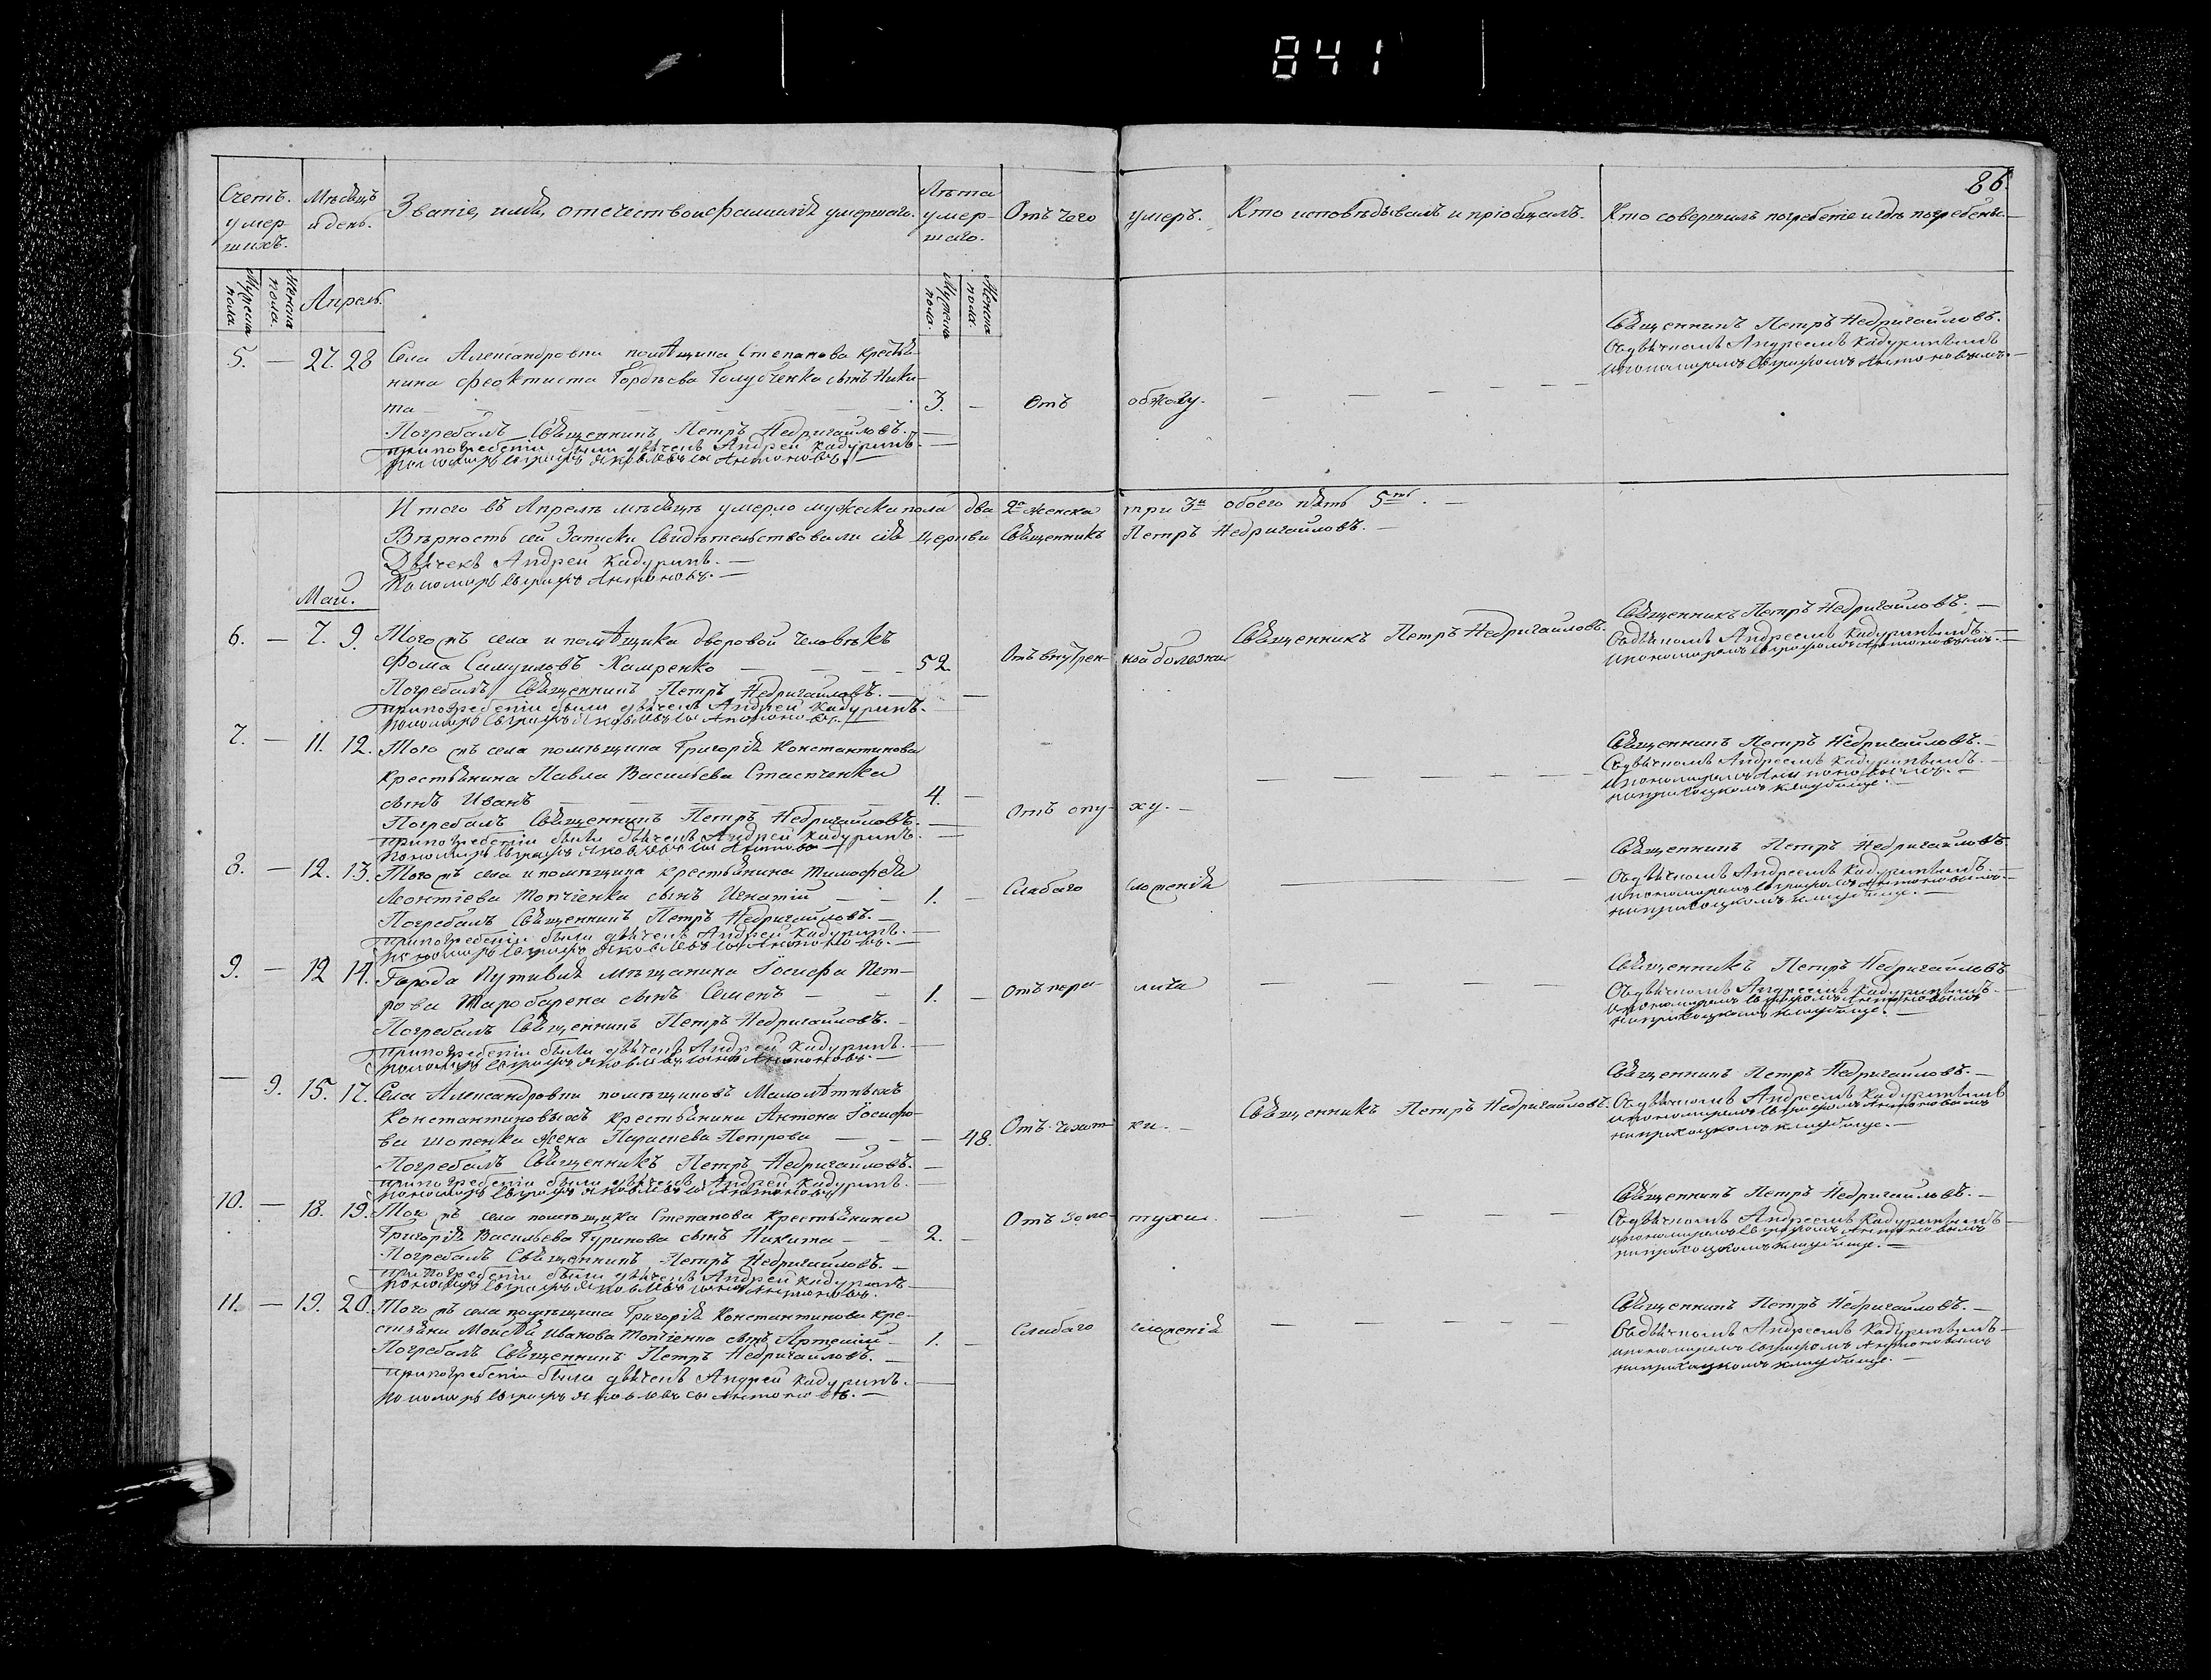 841
86.
Счетъ умершихъ.
Мужеска пола.
Женска пола.
Мѣсяцъ и день.
Званіе, имя, отечество и фамилія умершаго.
Лѣта умершаго.
Мужеска пола.
Женска пола.
Отъ чего умеръ.
Кто исповѣдывалъ и пріобщалъ.
Кто совершилъ погребеніе и гдѣ погребены.
Апрель.
5. — 27. 28 Села Александровки помѣщика Степанова крестья-
нина Феоктиста Гордѣева Голубченка сынъ Ники-
та — 3. — Отъ обжогу.
Погребалъ Священникъ Петръ Недригайловъ. —
при погребеніи были дьячекъ Андрей Кадуринъ. —
Священникъ Петръ Недригайловъ.
Съ дьячкомъ Андреемъ Кадуринымъ
и пономаремъ Антоновымъ. —
Итого въ Апрелѣ мѣсяцѣ умерло мужеска пола два 2а женска три 3и обоего пять 5ть. —
Вѣрность сей Записки Свидѣтельствовали сія церкви Священникъ Петръ Недригайловъ. —
Дьячекъ Андрей Кадуринъ. —
Пономарь Антоновъ. —
Май.
6. — 7. 9. Того жъ села и помѣщика дворовой человѣкъ
Фома Самуиловъ Хамренко — 52. Отъ внутрен- ной болезни
Погребалъ Священникъ Петръ Недригайловъ. —
при погребеніи были дьячекъ Андрей Кадуринъ. —
Священникъ Петръ Недригайловъ.
Священникъ Петръ Недригайловъ. —
Съ дьячкомъ Андреемъ Кадуринымъ. —
и пономаремъ Антоновымъ. —
7. — 11. 12. Того жъ села помѣщика Григорія Константинова
крестьянина Павла Васильева
сынъ Иванъ — 4. — Отъ опу- ху. —
Погребалъ Священникъ Петръ Недригайловъ. —
при погребеніи были дьячекъ Андрей Кадуринъ. —
Священникъ Петръ Недригайловъ. —
Съ дьячкомъ Андреемъ Кадуринымъ. —
на приходскомъ кладбище. —
8. — 12. 13. Того жъ села и помѣщика крестьянина Тимофея
Леонтіева Топчіенка сынъ Игнатій — 1. — Слабаго сложенія
Погребалъ Священникъ Петръ Недригайловъ. —
при погребеніи были дьячекъ Андрей Кадуринъ. —
Священникъ Петръ Недригайловъ
Съ дьячкомъ Андреемъ Кадуринымъ. —
и пономаремъ Антоновымъ. —
на приходскомъ кладбище. —
9. — 12 14. Города Путивля мѣщанина Іосифа Пет-
рова сынъ Семенъ — 1. —
Погребалъ Священникъ Петръ Недригайловъ. —
при погребеніи были дьячекъ Андрей Кадуринъ. —
Священникъ Петръ Недригайловъ
Съ дьячкомъ Андреемъ Кадуринымъ. —
и пономаремъ Антоновымъ
на приходскомъ кладбище. —
— 9. 15. 17. Села Александровки помѣщиковъ Малолѣтныхъ
Константиновыхъ крестьянина Антона Іосифо-
ва жена Параскева Петрова — 48. Отъ чахот- ки. —
Погребалъ Священникъ Петръ Недригайловъ. —
при погребеніи были дьячекъ Андрей Кадуринъ. —
Священникъ Петръ Недригайловъ.
Священникъ Петръ Недригайловъ. —
Съ дьячкомъ Андреемъ Кадуринымъ
и пономаремъ Антоновымъ
на приходскомъ кладбище. —
10. — 18. 19. Того жъ села помѣщика Степанова крестьянина
Григорія Васильева Гуринова сынъ Никита — 2. — Отъ золо- тухи.
Погребалъ Священникъ Петръ Недригайловъ. —
при погребеніи были дьячекъ Андрей Кадуринъ —
Священникъ Петръ Недригайловъ. —
Съ дьячкомъ Андреемъ Кадуринымъ —
и пономаремъ Антоновымъ
на приходскомъ кладбище. —
11. — 19. 20. Того жъ села помѣщика Григорія Константинова кре-
стьянина Моисея Иванова Топчіенка сынъ Артемій — 1. — Слабаго сложенія
Погребалъ Священникъ Петръ Недригайловъ. —
при погребеніи были дьячекъ Андрей Кадуринъ. —
Священникъ Петръ Недригайловъ. —
Съ дьячкомъ Андреемъ Кадуринымъ —
и пономаремъ Антоновымъ
на приходскомъ кладбище. —